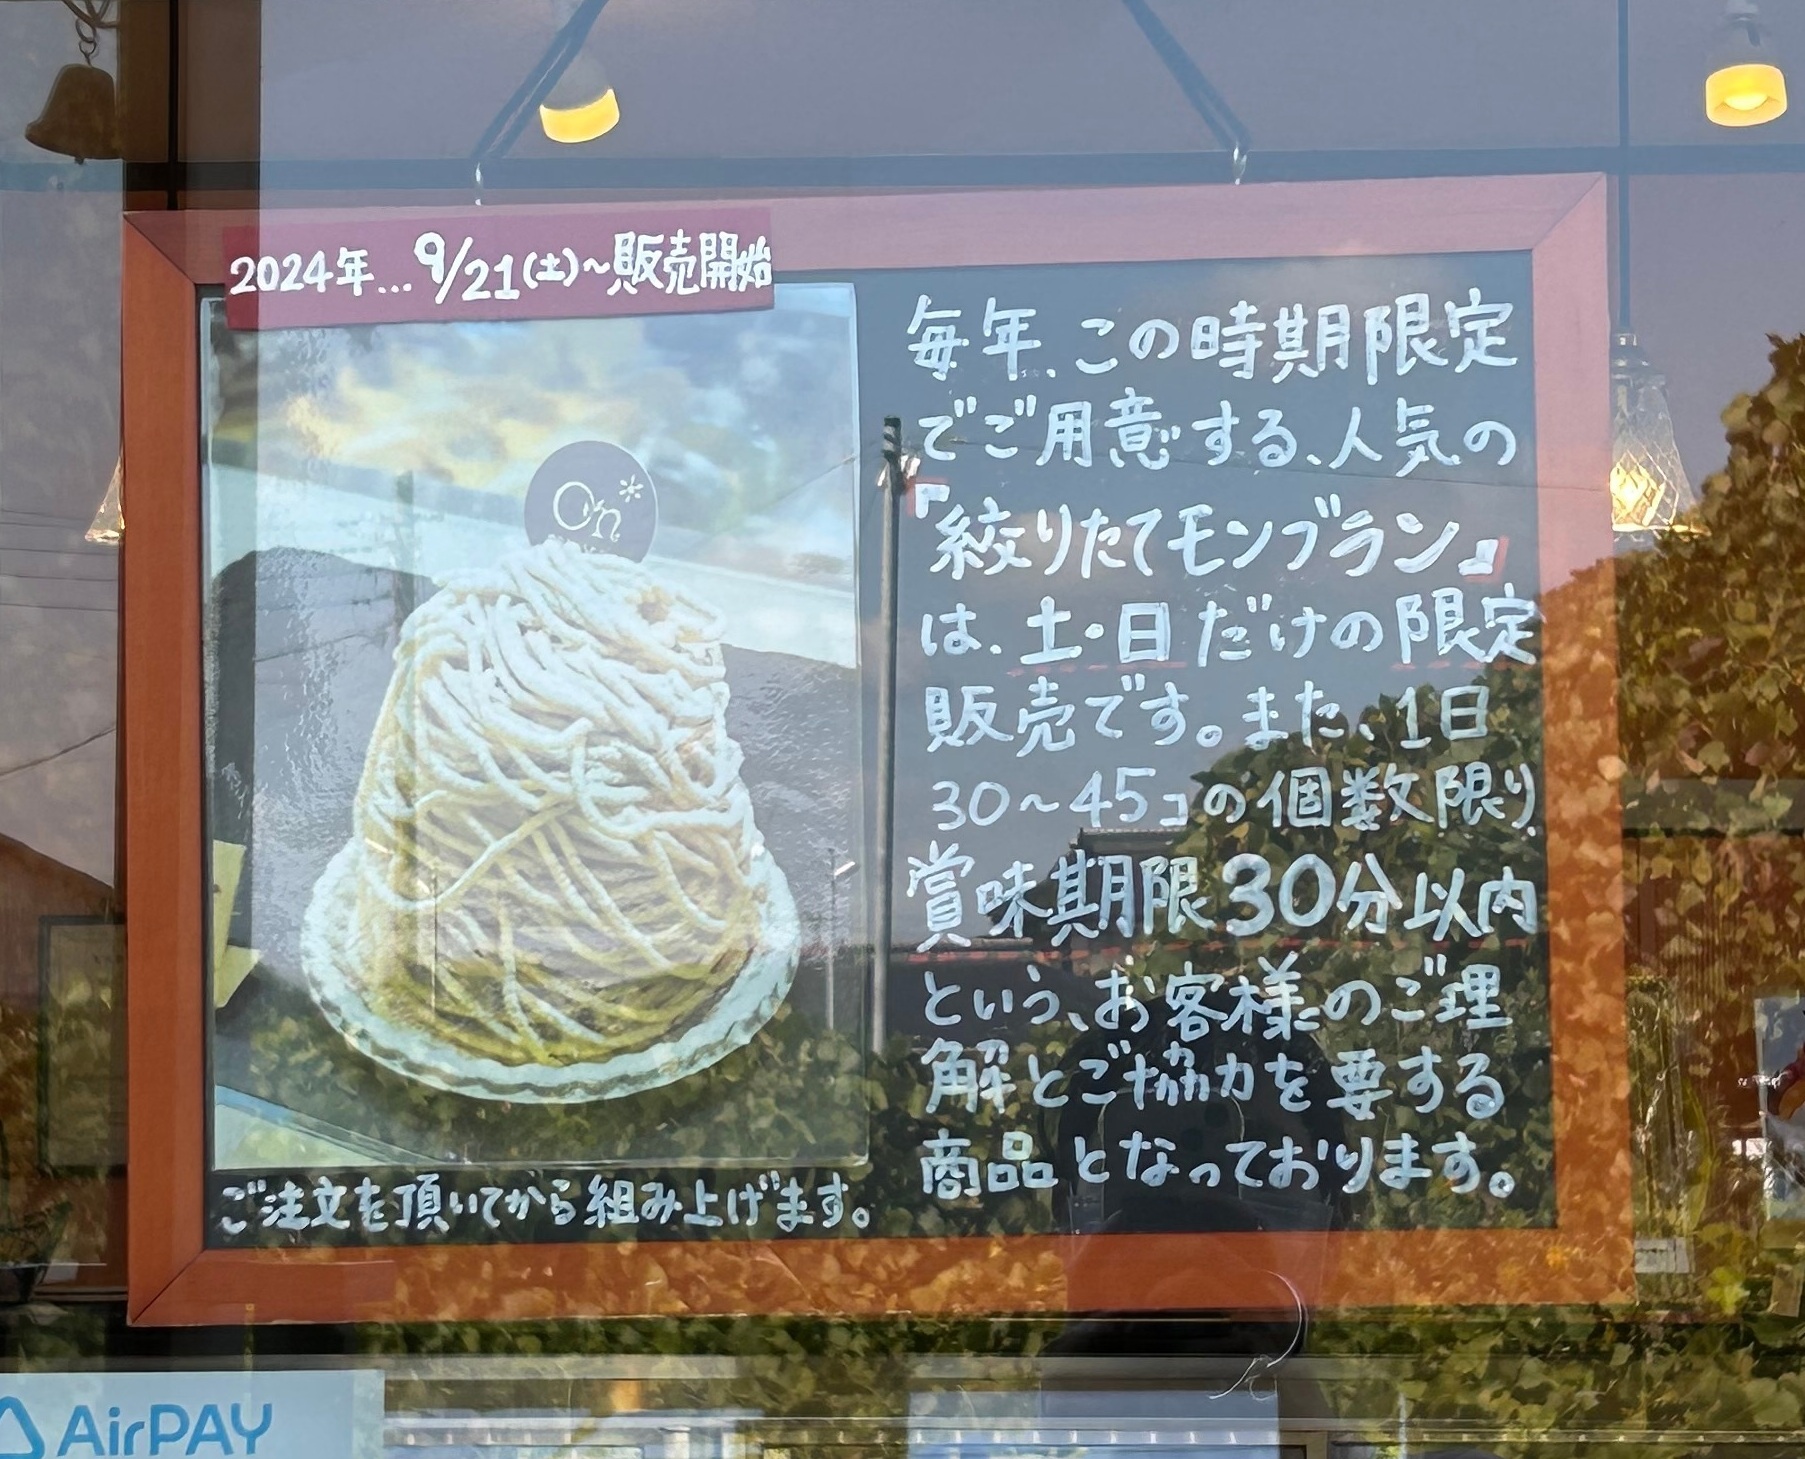 2024年...9/21(土)~販売開始
On
毎年、この時期限定
でご用意する、人気の
『絞りたてモンブラン』
は、土・日だけの限定
販売です。また、1日
30~45コの個数限り
賞味期限30分以内
という、お客様のご理
解とご協力を要する
商品となっております。
ご注文を頂いてから組み上げます。
AirPAY